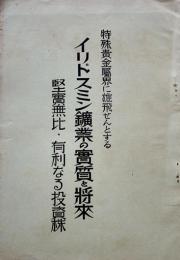 特殊貴金屬界に雄飛せんとする
イリドスミン鑛業の實質と將來
堅實無比・有利なる投資株